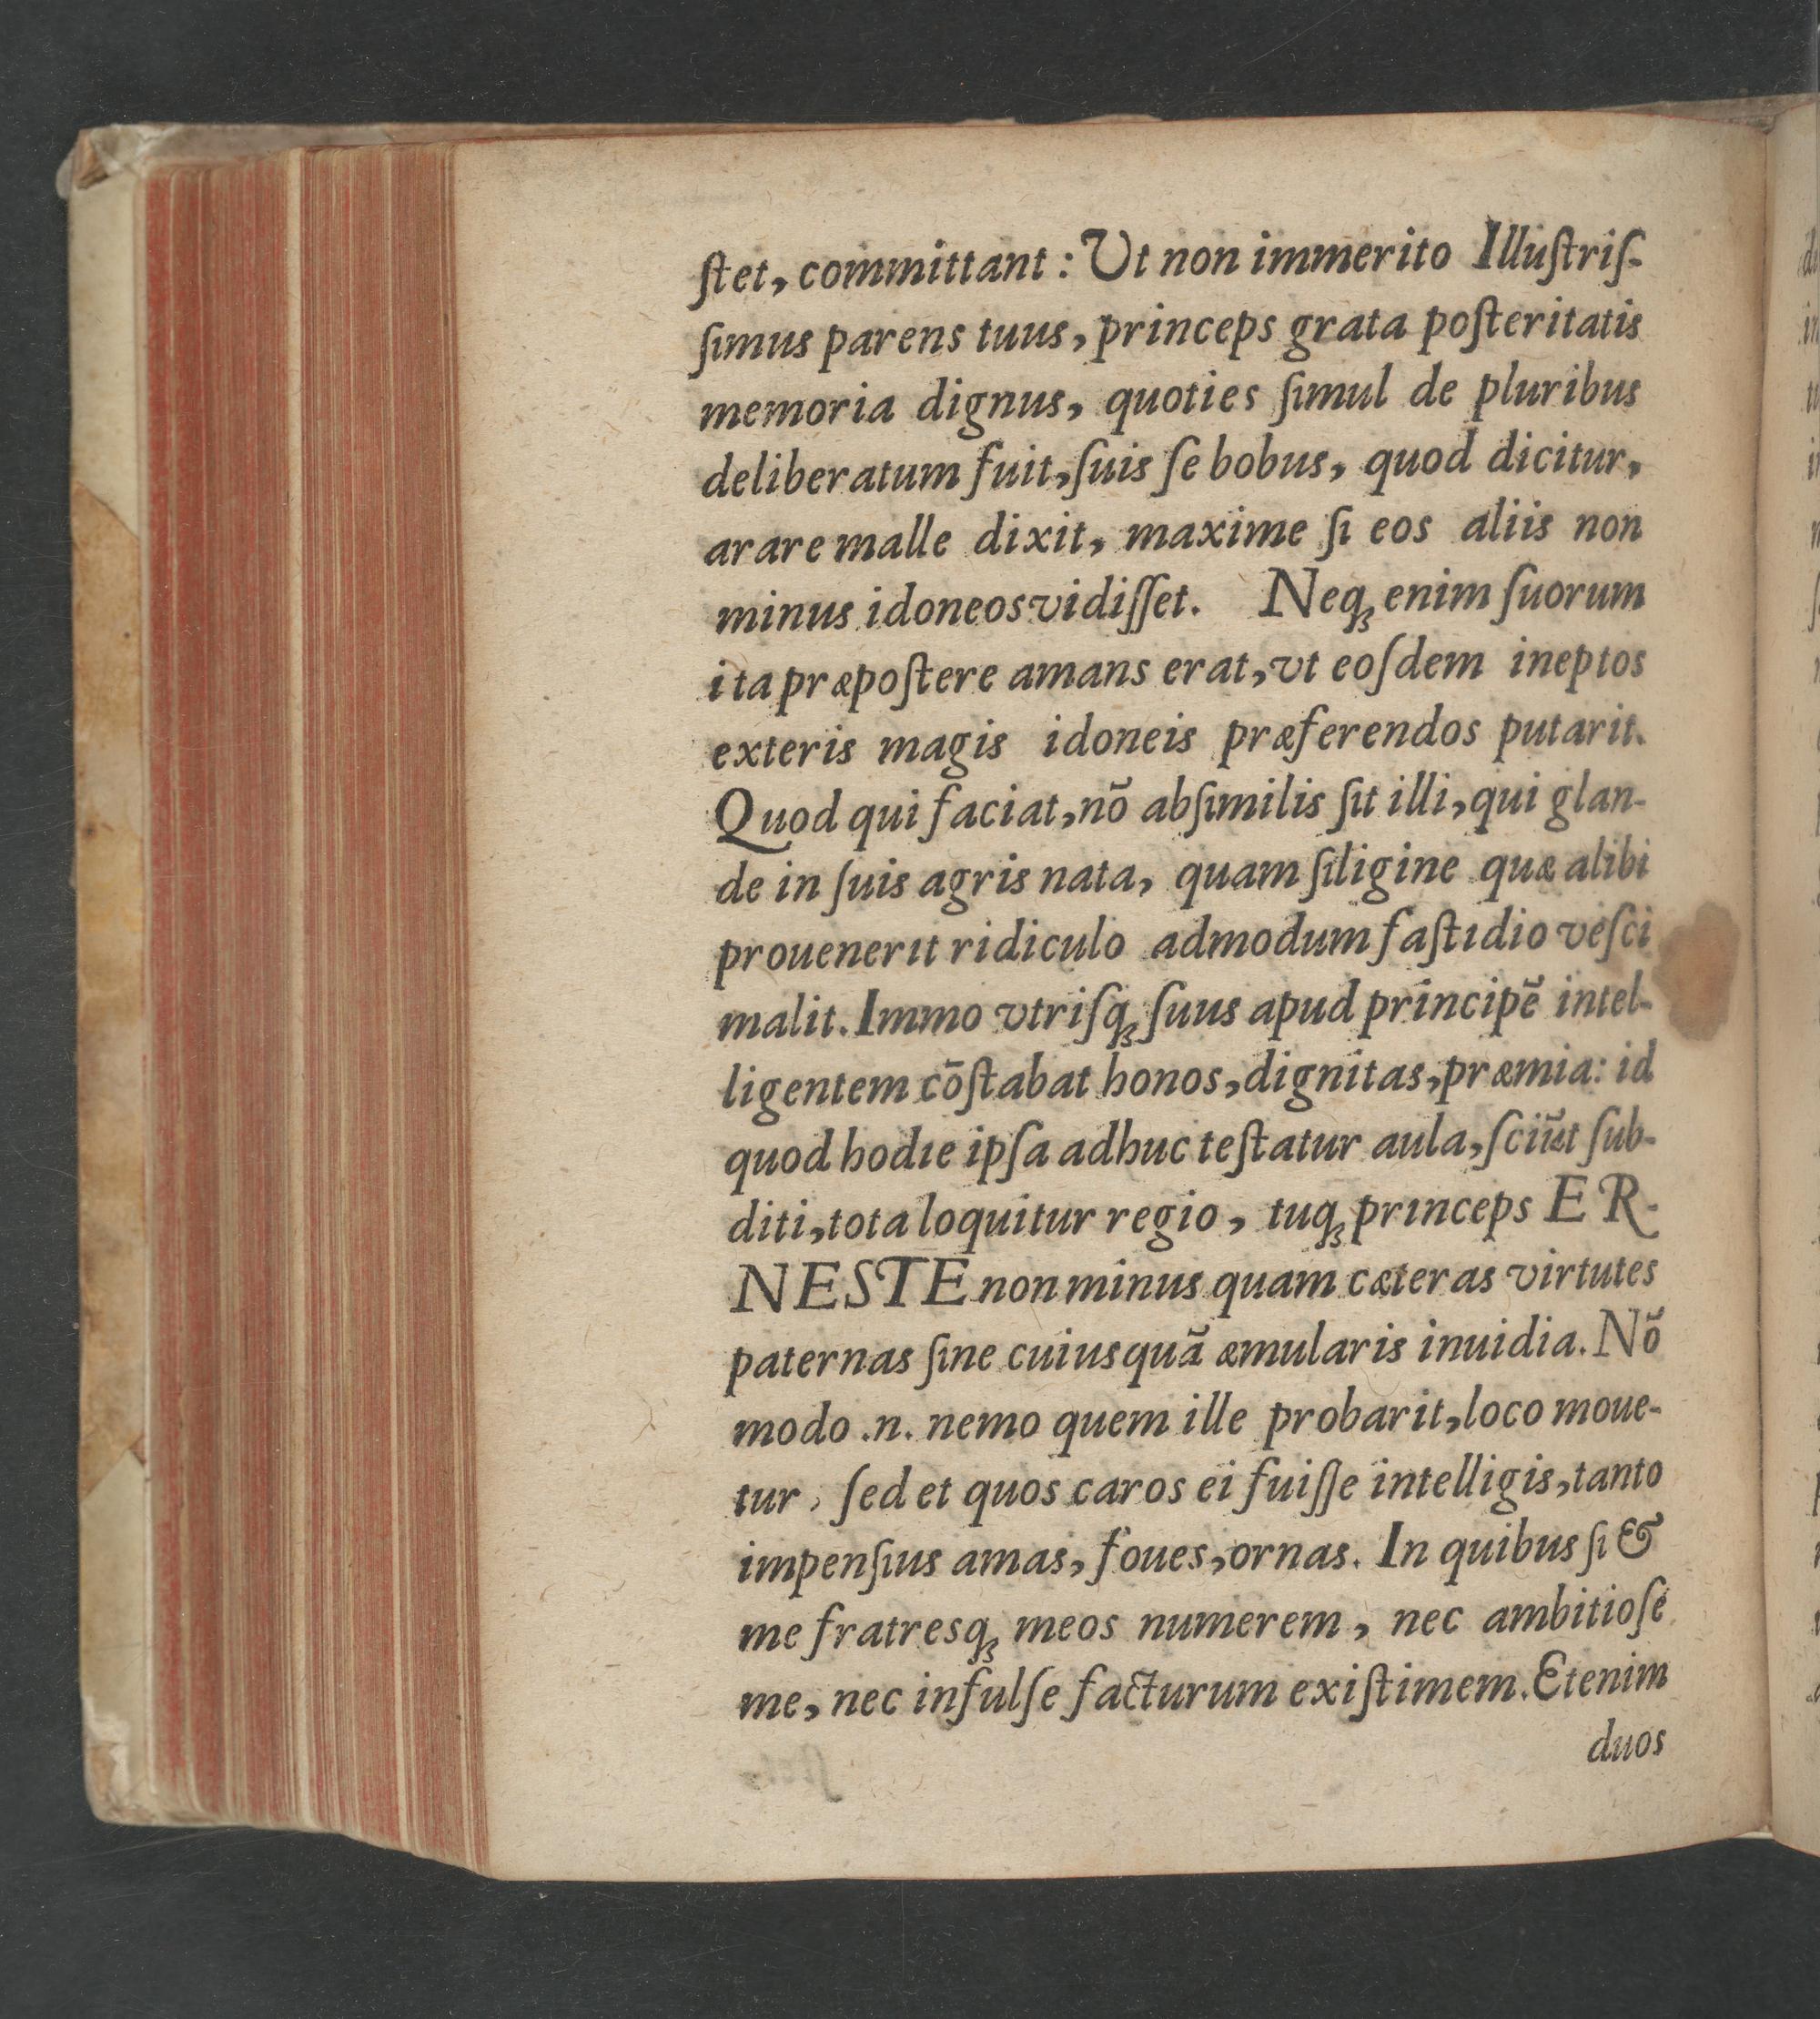 ſtet, committant: Ut non immerito Illuſtriſ-
ſimus parens tuus, princeps grata poſteritatis
memoria dignus, quoties ſimul de pluribus
deliberatum fuit, ſuis ſe bobus, quod dicitur,
arare malle dixit, maxime ſi eos aliis non
minus idoneos vidiſſet. Neqꝫ enim ſuorum
ita præpoſtere amans erat, vt eoſdem ineptos
exteris magis idoneis præferendos putarit.
Quod qui faciat, nõ abſimilis ſit illi, qui glan-
de in ſuis agris nata, quam ſiligine quæ alibi
prouenerit ridiculo admodum faſtidio veſci
malit. Immo vtriſqꝫ ſuus apud principẽ intel-
ligentem cõſtabat honos, dignitas, præmia: id
quod hodie ipſa adhuc teſtatur aula, ſciũt ſub-
diti, tota loquitur regio, tuqꝫ princeps ER-
NESTE non minus quam cæteras virtutes
paternas ſine cuiusquã æmularis inuidia. Nõ
modo .n. nemo quem ille probarit, loco moue-
tur, ſed et quos caros ei fuiſſe intelligis, tanto
impenſius amas, foues, ornas. In quibus ſi &
me fratresqꝫ meos numerem, nec ambitioſe
me, nec infulſe facturum exiſtimem. Etenim
duos